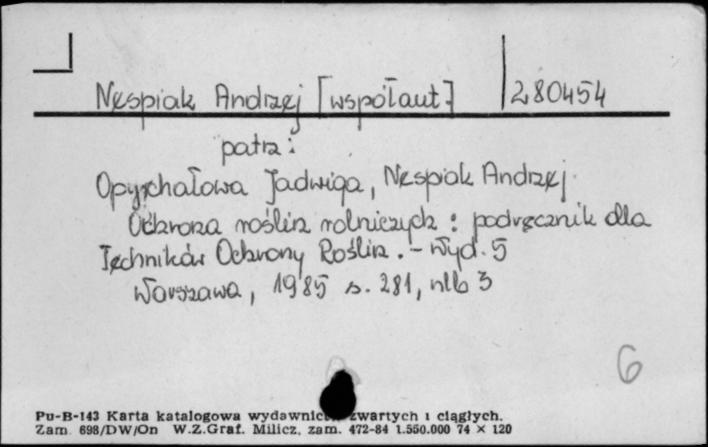 Nespiak Andrzej [współaut.] 280454
patrz:
Opyrchałowa Jadwiga, Nespiak Andrzej.
Ochrona roślin rolniczych : podręcznik dla
Techników Ochrony Roślin. - Wyd. 5
Warszawa, 1985 s. 281, nlb 3
6
Pu-B-143 Karta katalogowa wydawnictw zwartych i ciągłych.
Zam. 698/DW/On W.Z.Graf. Milicz, zam. 472-84 1.550.000 74 × 120